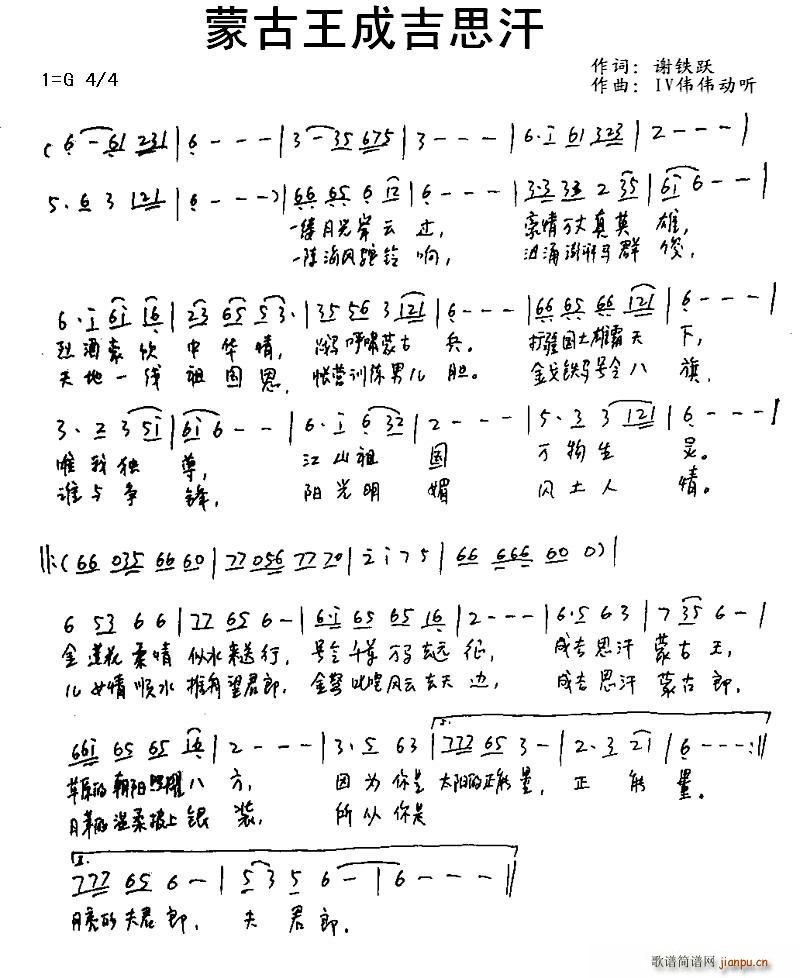 蒙古王成吉思汗
1=G 4/4
作词：谢铁跃
作曲：IV伟伟动听
(6 - 61 231 | 6 - - - | 3 - 35 675 | 3 - - - | 6·i 61 323 | 2 - - - |
5·6 3 121 | 6 - - -) | 66 65 6 i2 | 6 - - - | 3·3 33 2 35 | 6i 6 - - |
月光 云过， 豪情万丈真英雄，
一阵海风驼铃响， 汹涌澎湃马群
6·i 6i i6 | 23 65 53· | 35 56 3 121 | 6 - - - | 66 65 66 121 | 6 - - - |
烈酒豪饮中华情， 呼啸蒙古兵。 打疆国土雄霸天下，
天地一线祖国恩， 帐营训练男儿胆。 金戈铁马号令八旗，
3·2 3 5i | 6i 6 - - | 6·i 6 32 | 2 - - - | 5·3 3 121 | 6 - - - |
唯我独尊， 江山祖国 万物生灵。
谁与争锋， 阳光明媚 风土人情。
||:(66 035 66 60 | 77 056 77 70 | 2 i 7 5 | 66 666 60 0) |
6 53 6 6 | 77 65 6 - | 6·i 65 65 16 | 2 - - - | 6·5 6 3 | 7 35 6 - |
金莲花柔情似水来送行， 号令千军万马去远征， 成吉思汗蒙古王，
儿女情顺水推舟望君郎， 金弩叱咤风云去天边， 成吉思汗蒙古郎，
66i 65 65 16 | 2 - - - | 3·5 63 | 777 65 3 - | 2·3 2i | 6 - - - :||
草原的朝阳照耀八方， 因为你是太阳的正能量， 正能量。
月 的温柔披上银装， 所以你是
2.
777 65 6 - | 5 3 5 6 - | 6 - - - ||
月亮的夫君郎， 夫君郎。
歌谱简谱网
jianpu.cn